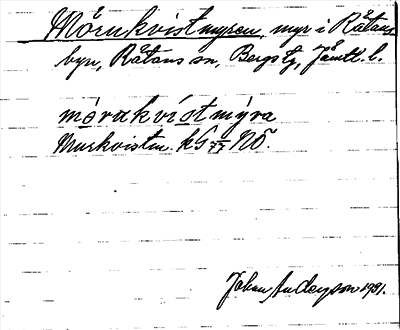 Mörnkvistmyren, myr i Rätans
byn, Rätans sn, Bergs tg, Jämtl. l.
mórakvístmýra
Murkvistm. kG 77 NÖ.
Johan Anderson 1931.